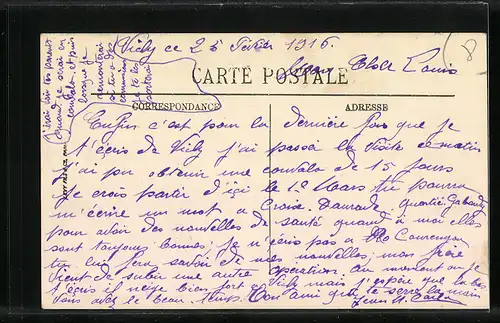 Vichy ce 25 Février 1916.
Mon Cher Louis
CARTE POSTALE
CORRESPONDANCE
ADRESSE
Enfin c'est pour la dernière fois que je
t'écris de Vichy j'ai passé la visite ce matin
j'ai pu obtenir une convalo de 15 jours
Je crois partir d'ici le 1er Mars tu pourra
m'écrire un mot a Croix Daurade quartier
pour avoir des nouvelles de santé quand à moi elles
sont toujours bonnes; Je n'écris pas a
tu lui fera savoir de mes nouvelles; mon frère
vient de subir une autre opération au moment ou je
t'écris il neige bien fort a Vichy mais j'espère que la bas
vous avez le beau temps. Ton ami que te serre la main
Jean
j'irai voir tes parents
quand je serai en
convalo et puis
lorsque je